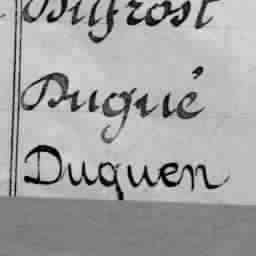 Dufrost
Dugué
Duquen